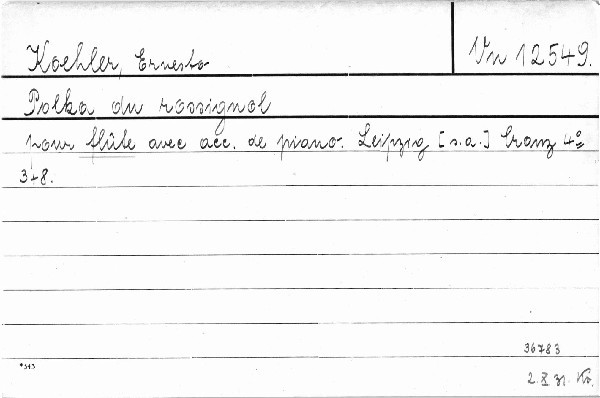 Koehler, Ernesto
Vn 12549.
Polka du rossignol
pour flûte avec acc. de piano. Leipzig [s.a.] Cranz 4º
348.
36783
*543
2. X 31. Ko.